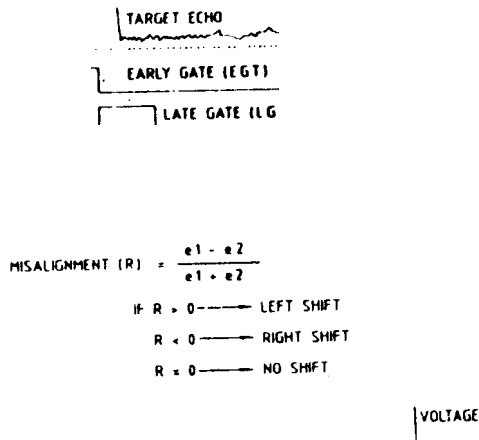 TARGET ECHO
EARLY GATE (EGT)
LATE GATE (LG
MISALIGNMENT (R) = e1 - e2
e1 + e2
If R > 0 → LEFT SHIFT
R < 0 → RIGHT SHIFT
R = 0 → NO SHIFT
VOLTAGE